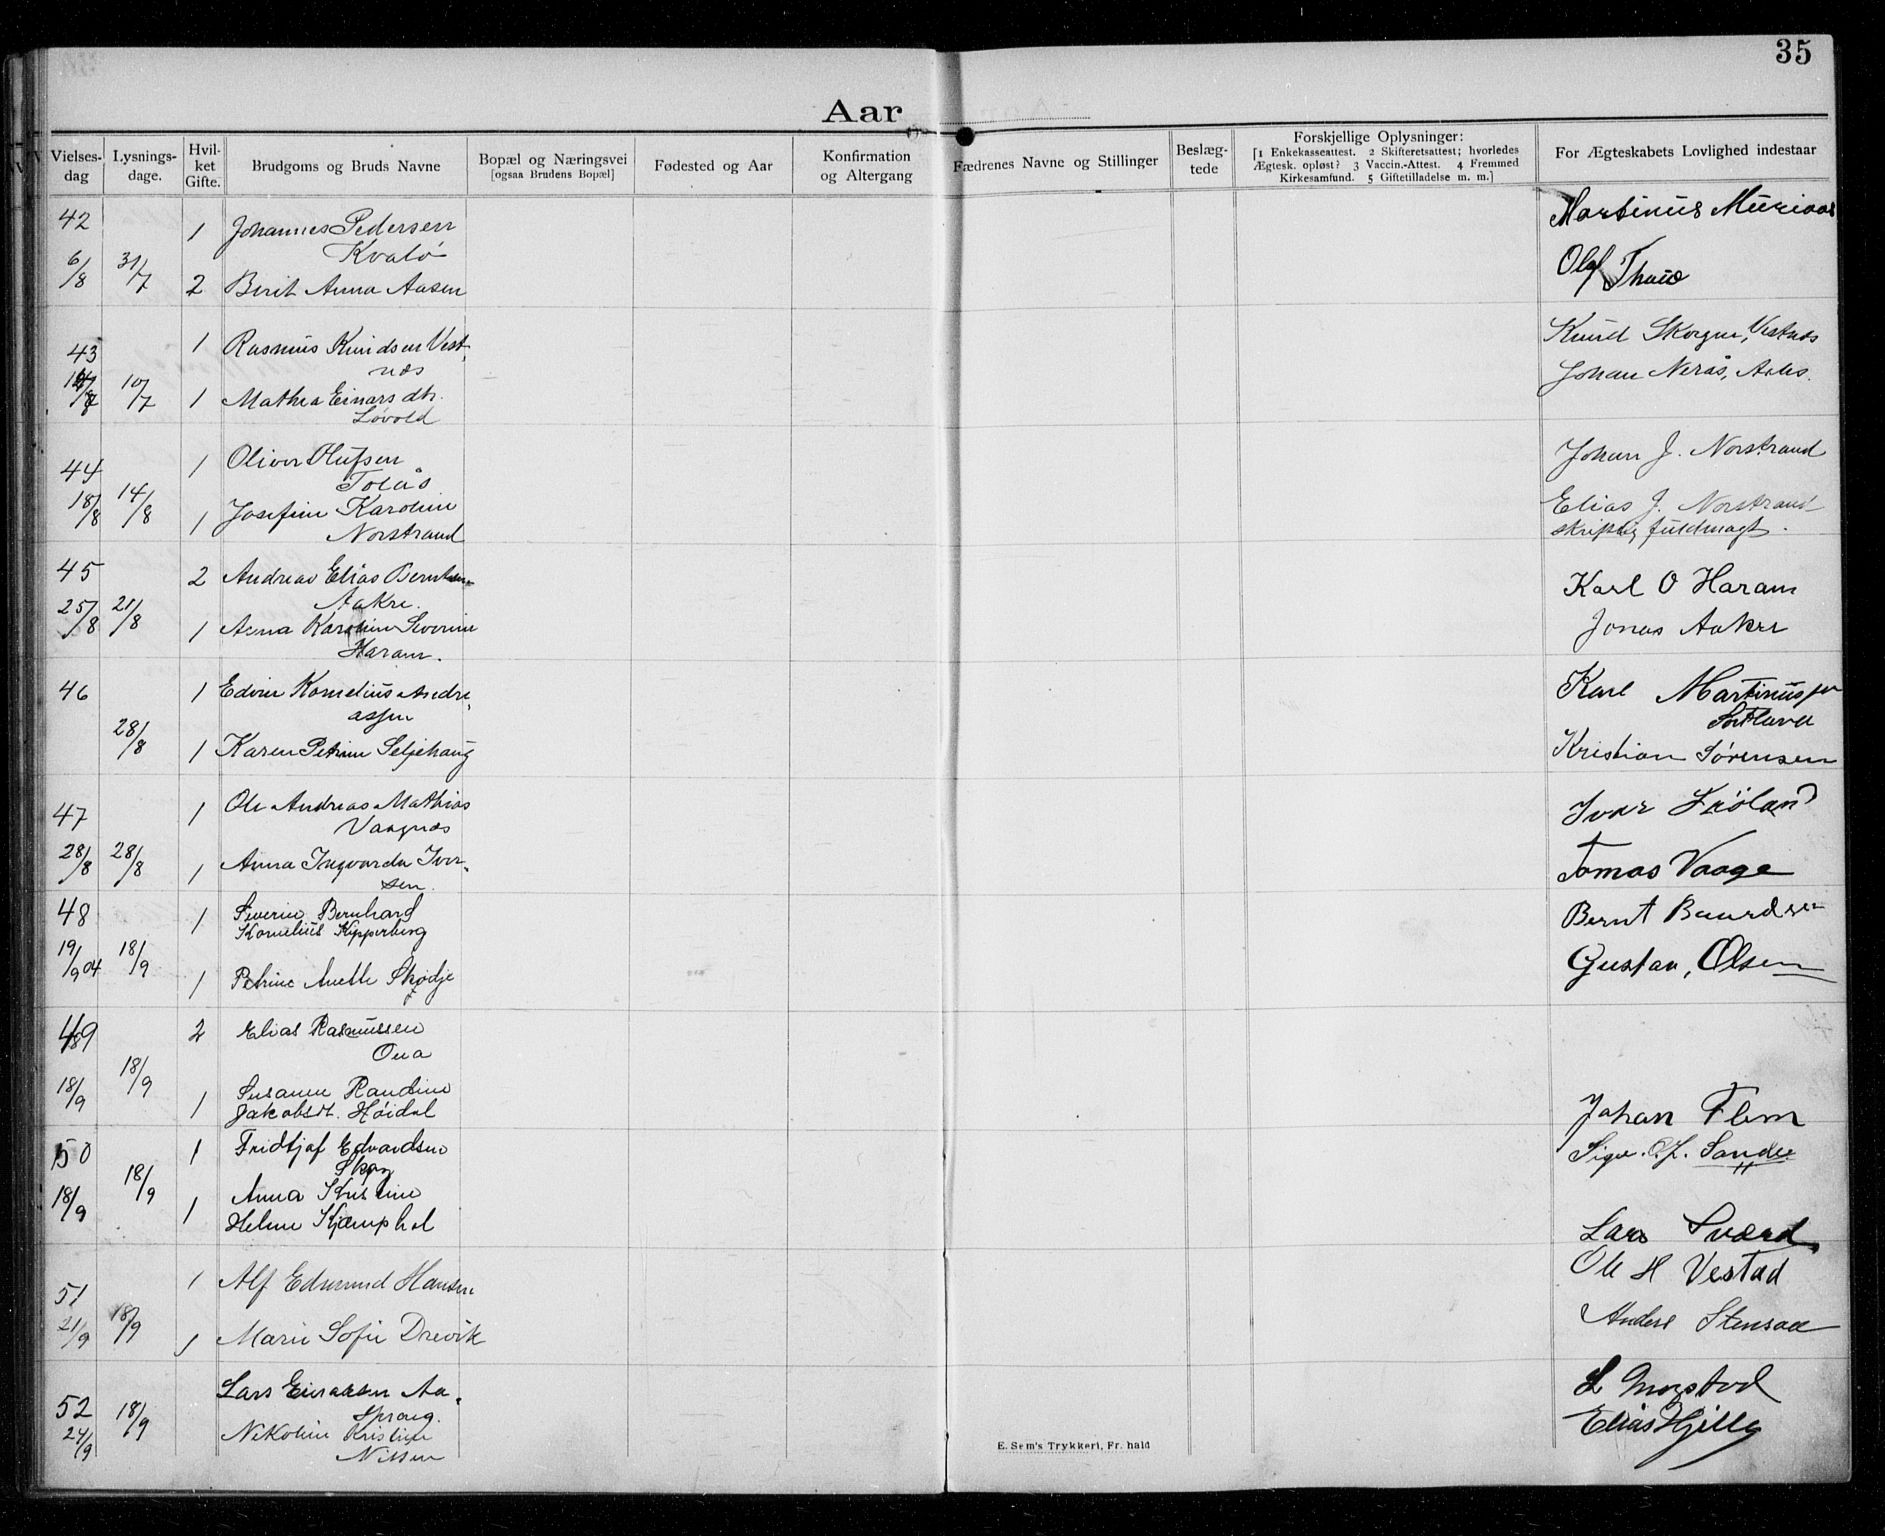 35
Aar
Vielses-dag
Lysnings-dage.
Hvil-ket Gifte.
Brudgoms og Bruds Navne
Bopæl og Næringsvei [ogsaa Brudens Bopæl]
Fødested og Aar
Konfirmation og Altergang
Fædrenes Navne og Stillinger
Beslæg-tede
Forskjellige Oplysninger:
[1 Enkekasseattest. 2 Skifteretsattest; hvorledes
Ægtesk. opløst? 3 Vaccin.-Attest. 4 Fremmed
Kirkesamfund. 5 Giftetilladelse m. m.]
For Ægteskabets Lovlighed indestaar
42 1 Johannes Pedersen Martinus
Kvalø
6/8 31/7 2 Berit Anna Aasen Olaf
43 1 Rasmus Knudsen Vest- Knud Skorgen, Vestnæs
næs Johan Nerås, Aales.
10/7 1 Mathea Einarsdtr.
Løvold
44 1 Oliver Olufsen Johan J. Norstrand
Tolås
18/8 14/8 1 Josefine Karoline Elias J. Norstrand
Norstrand skriftlig fuldmagt.
45 2 Andreas Elias Berntsen Karl O Haram
Aakre.
25/8 21/8 1 Anna Karoline Severine Jonas Aakre
Haram.
46 1 Edvin Kornelius Andre- Karl Martinussen
assen
28/8 1 Karen Petrine Seljehaug Kristian Sørensen
47 1 Ole Andreas Mathias Ivar
Vaagnæs
28/8 28/8 1 Anna Ingvarda Iver- Tomas Vaage
sen.
48 1 Severin Bernhard Bernt Baardsen
Kornelius Kipperberg
19/9 04 18/9 1 Petrine Anette Skodje Gustav, Olsen
49 2 Elias Rasmussen
Ona
18/9 18/9 1 Susanne Randine
Jakobsdt. Høidal Johan Flem
50 1 Fridtjof Edvardsen Sigv. O. L. Sande
Skog
18/9 18/9 1 Anna Kristine
Helene Kjæmphol Lars Sværd
51 1 Alf Edmund Hansen Ole H Vestad
21/9 18/9 1 Marie Sofie Drevik Anders Stensaa
52 18/9 Lars Einarsen Aa- L Mogstad
sprong.
24/9 Nikoline Kristine Elias Hjelle
Nilssen
E. Sem's Trykkeri, Fr. hald